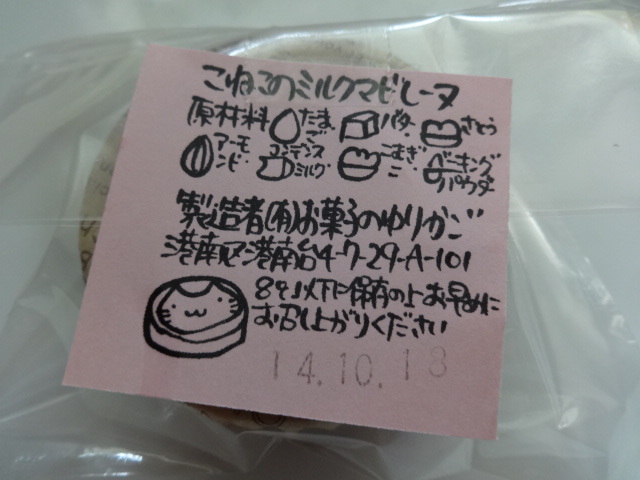 こねこのミルクマドレーヌ
原材料 たまご バター さとう
アーモンド コンデンスミルク こむぎこ ベーキングパウダー
製造者(有)お菓子のゆりかご
港南区港南台4-7-29-A-101
8℃以下に保存の上お早めに
お召し上がりください
14.10.18